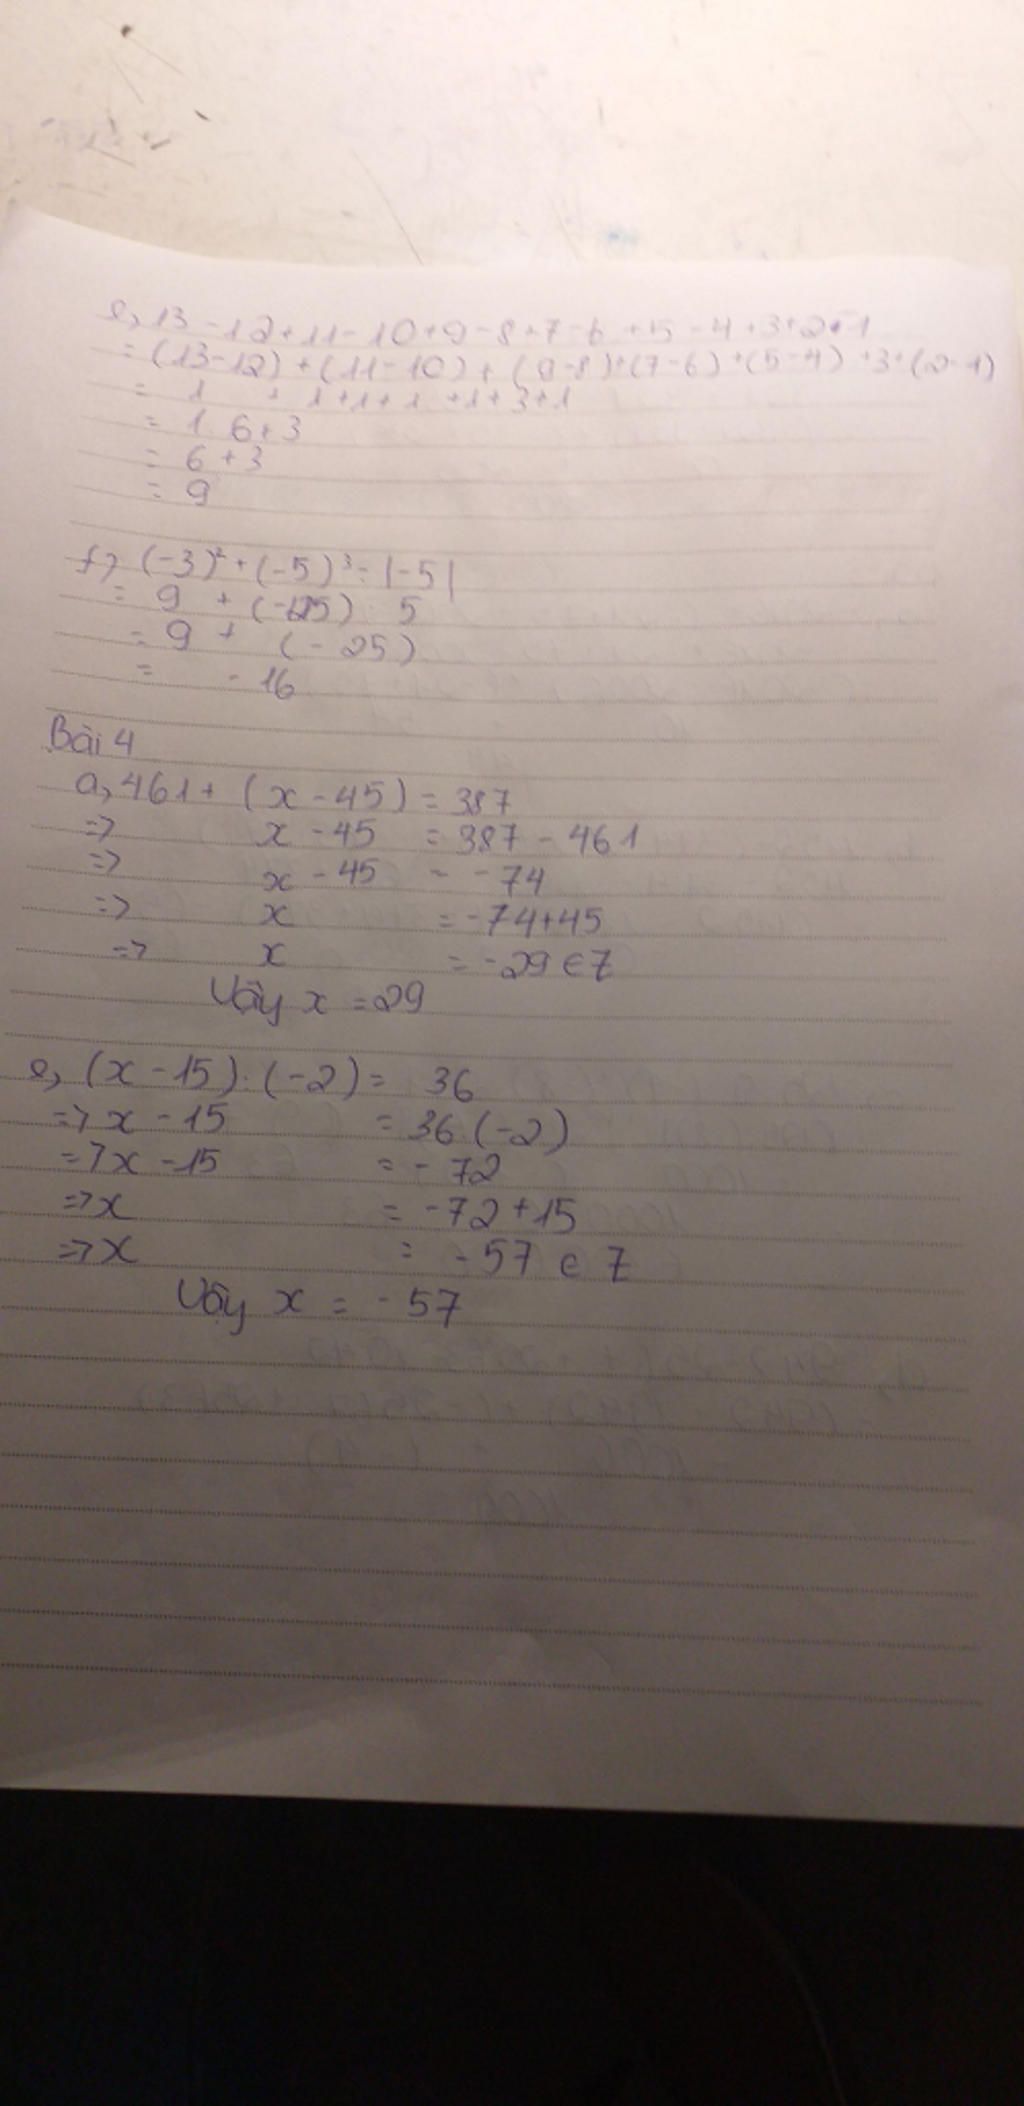 e, 13 - 12 + 11 - 10 + 9 - 8 + 7 - 6 + 5 - 4 + 3 + 2 - 1
= (13-12) + (11-10) + (9-8) + (7-6) + (5-4) + 3 + (2-1)
= 1 + 1 + 1 + 1 + 1 + 3 + 1
= 1. 6 + 3
= 6 + 3
= 9
f, (-3)² + (-5)³ : |-5|
= 9 + (-125) : 5
= 9 + (-25)
= -16
Bài 4
a, 461 + (x - 45) = 387
=> x - 45 = 387 - 461
=> x - 45 = -74
=> x = -74+45
=> x = -29 ∈ Z
Vậy x = 29
e, (x - 15) : (-2) = 36
=> x - 15 = 36.(-2)
=> x - 15 = -72
=> x = -72 + 15
=> x = -57 ∈ Z
Vậy x = -57